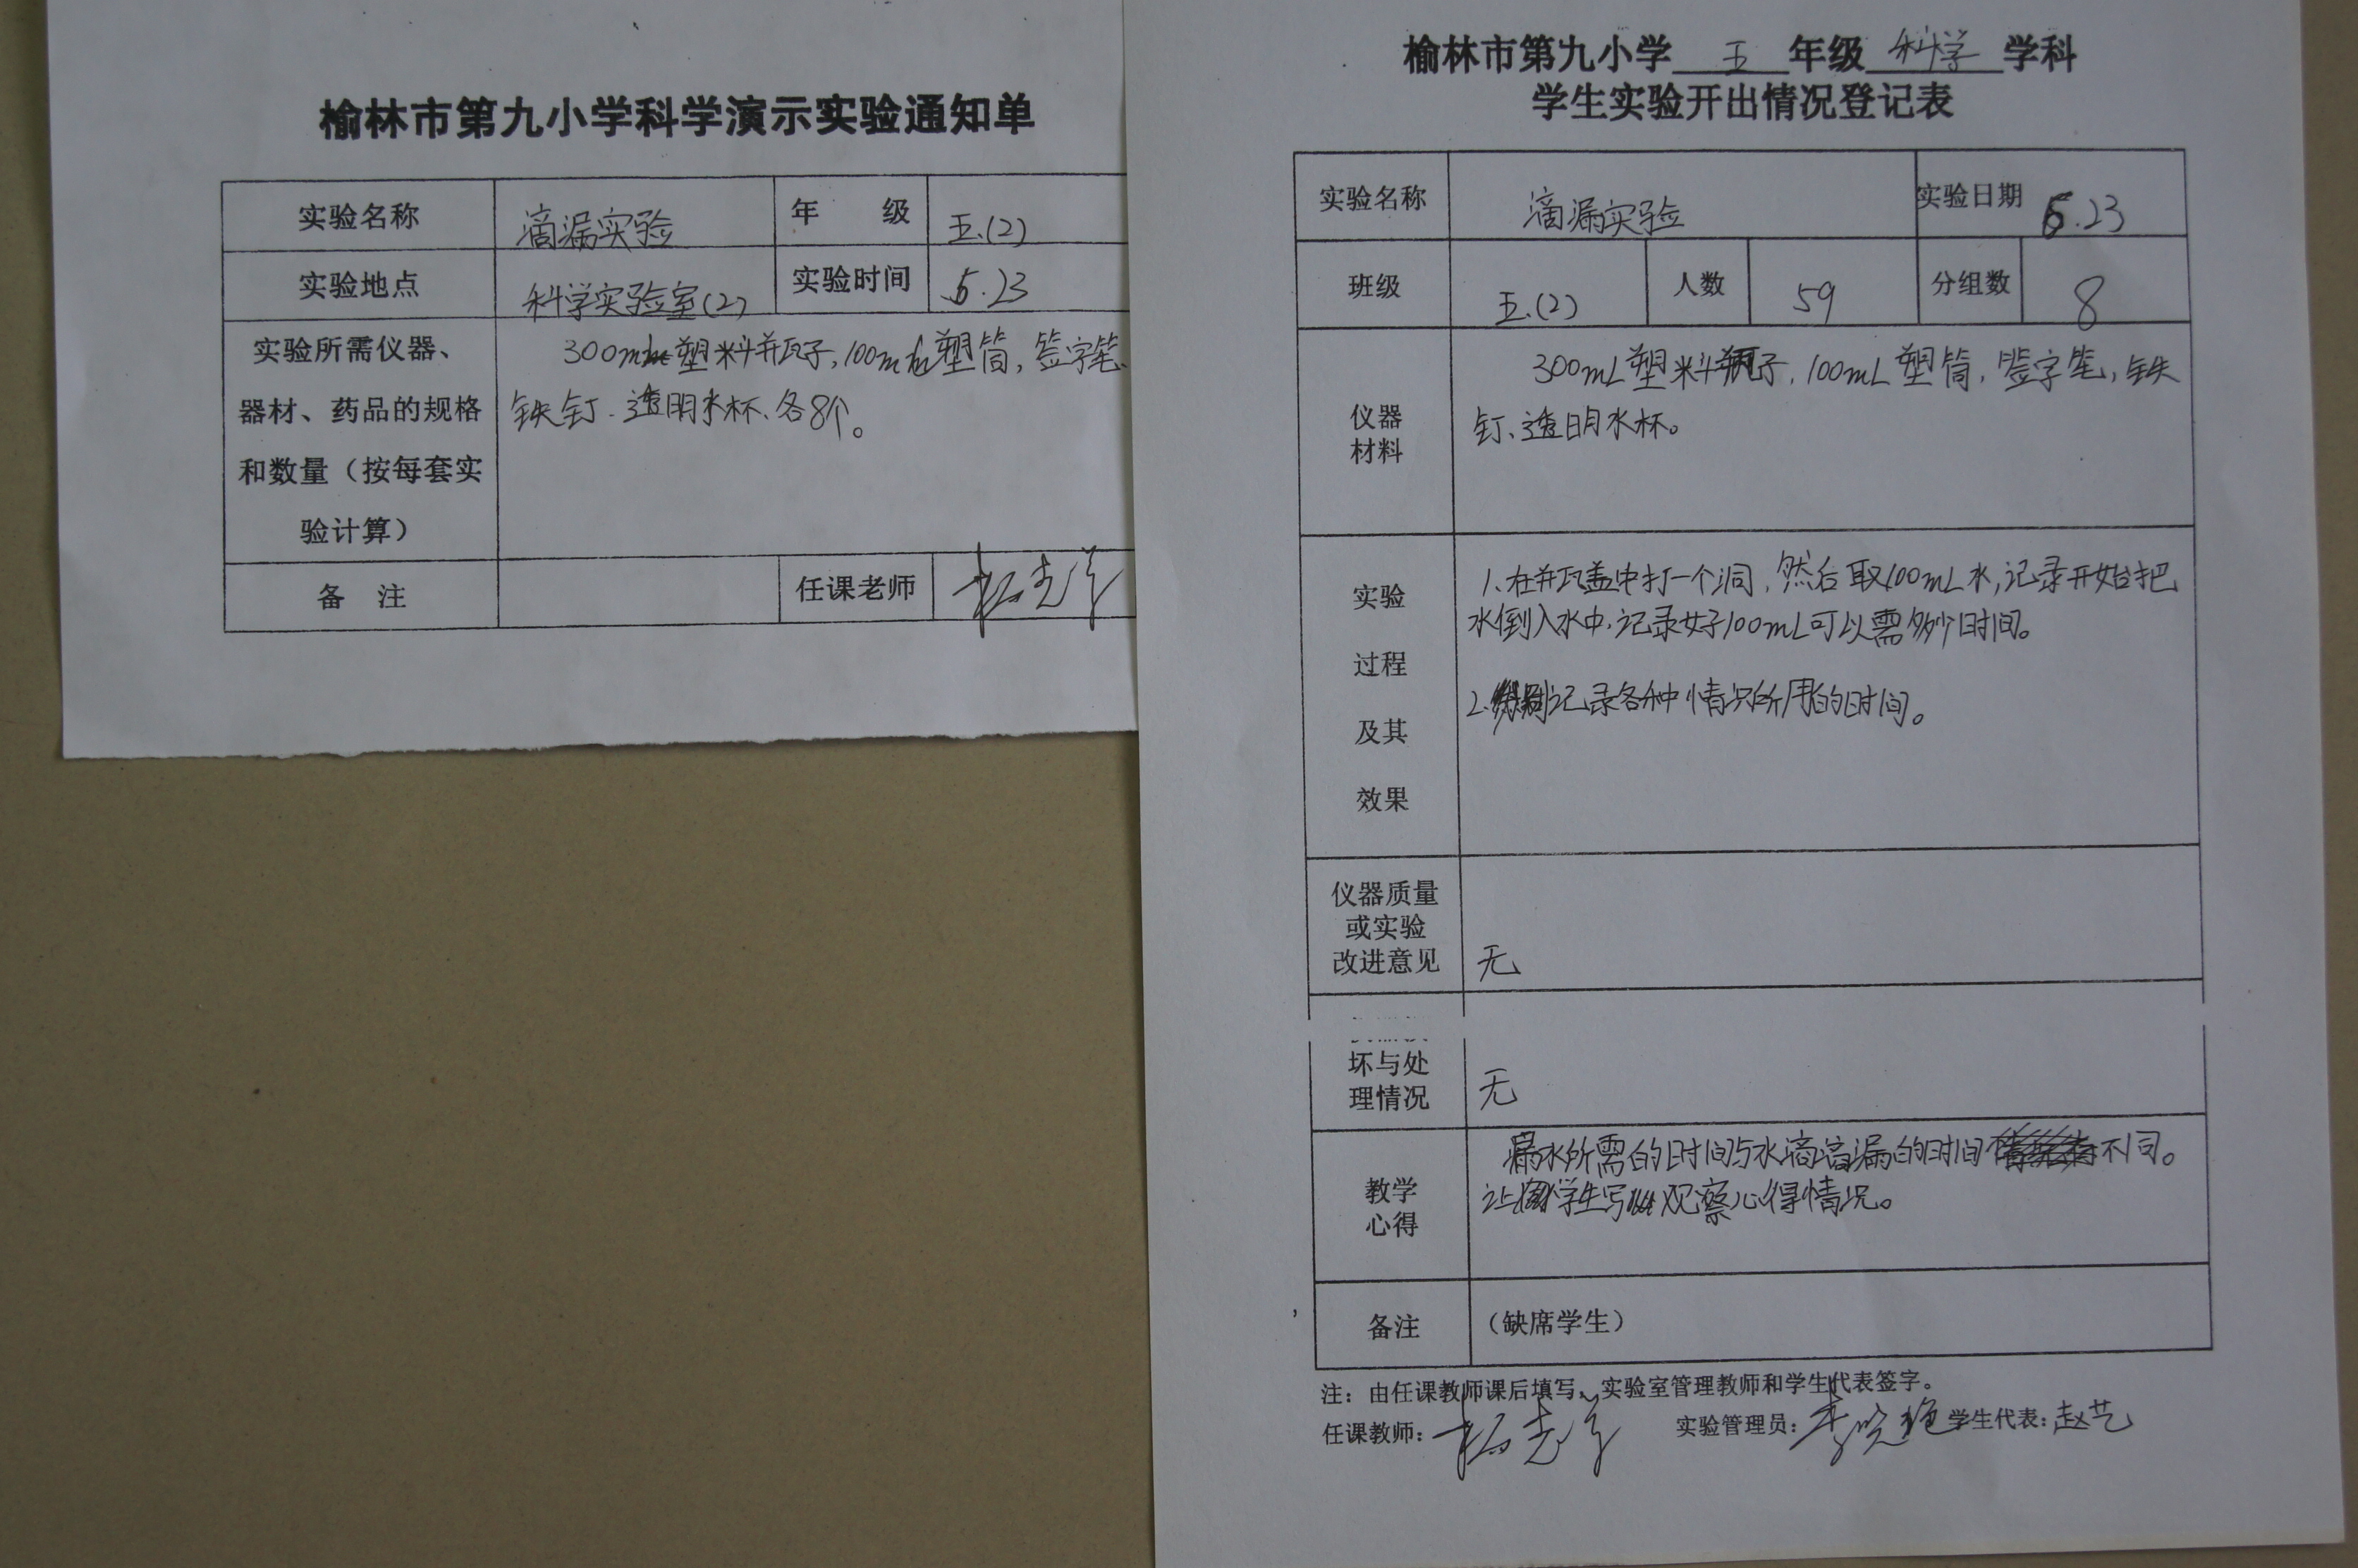 榆林市第九小学科学演示实验通知单
实验名称 滴漏实验 年 级 五.(2)
实验地点 科学实验室(2) 实验时间 5.23
实验所需仪器、
器材、药品的规格
和数量（按每套实
验计算）
300mL塑料瓶子,100mL塑筒,签字笔、
铁钉、透明水杯、各8个。
备 注 任课老师
榆林市第九小学 五 年级 科学 学科
学生实验开出情况登记表
实验名称 滴漏实验 实验日期 5.23
班级 五.(2) 人数 59 分组数 8
仪器
材料
300mL塑料瓶子,100mL塑筒,签字笔,铁
钉、透明水杯。
实验
过程
及其
效果
1.在瓶盖中打一个洞,然后取100mL水,记录开始把
水倒入水中,记录好100mL可以需多少时间。
2.记录各种情况所用的时间。
仪器质量
或实验
改进意见
无
坏与处
理情况
无
教学
心得
漏水所需的时间与水滴滴漏的时间不同。
让学生写观察心得情况。
备注 （缺席学生）
注：由任课教师课后填写、实验室管理教师和学生代表签字。
任课教师： 实验管理员： 学生代表：赵艺